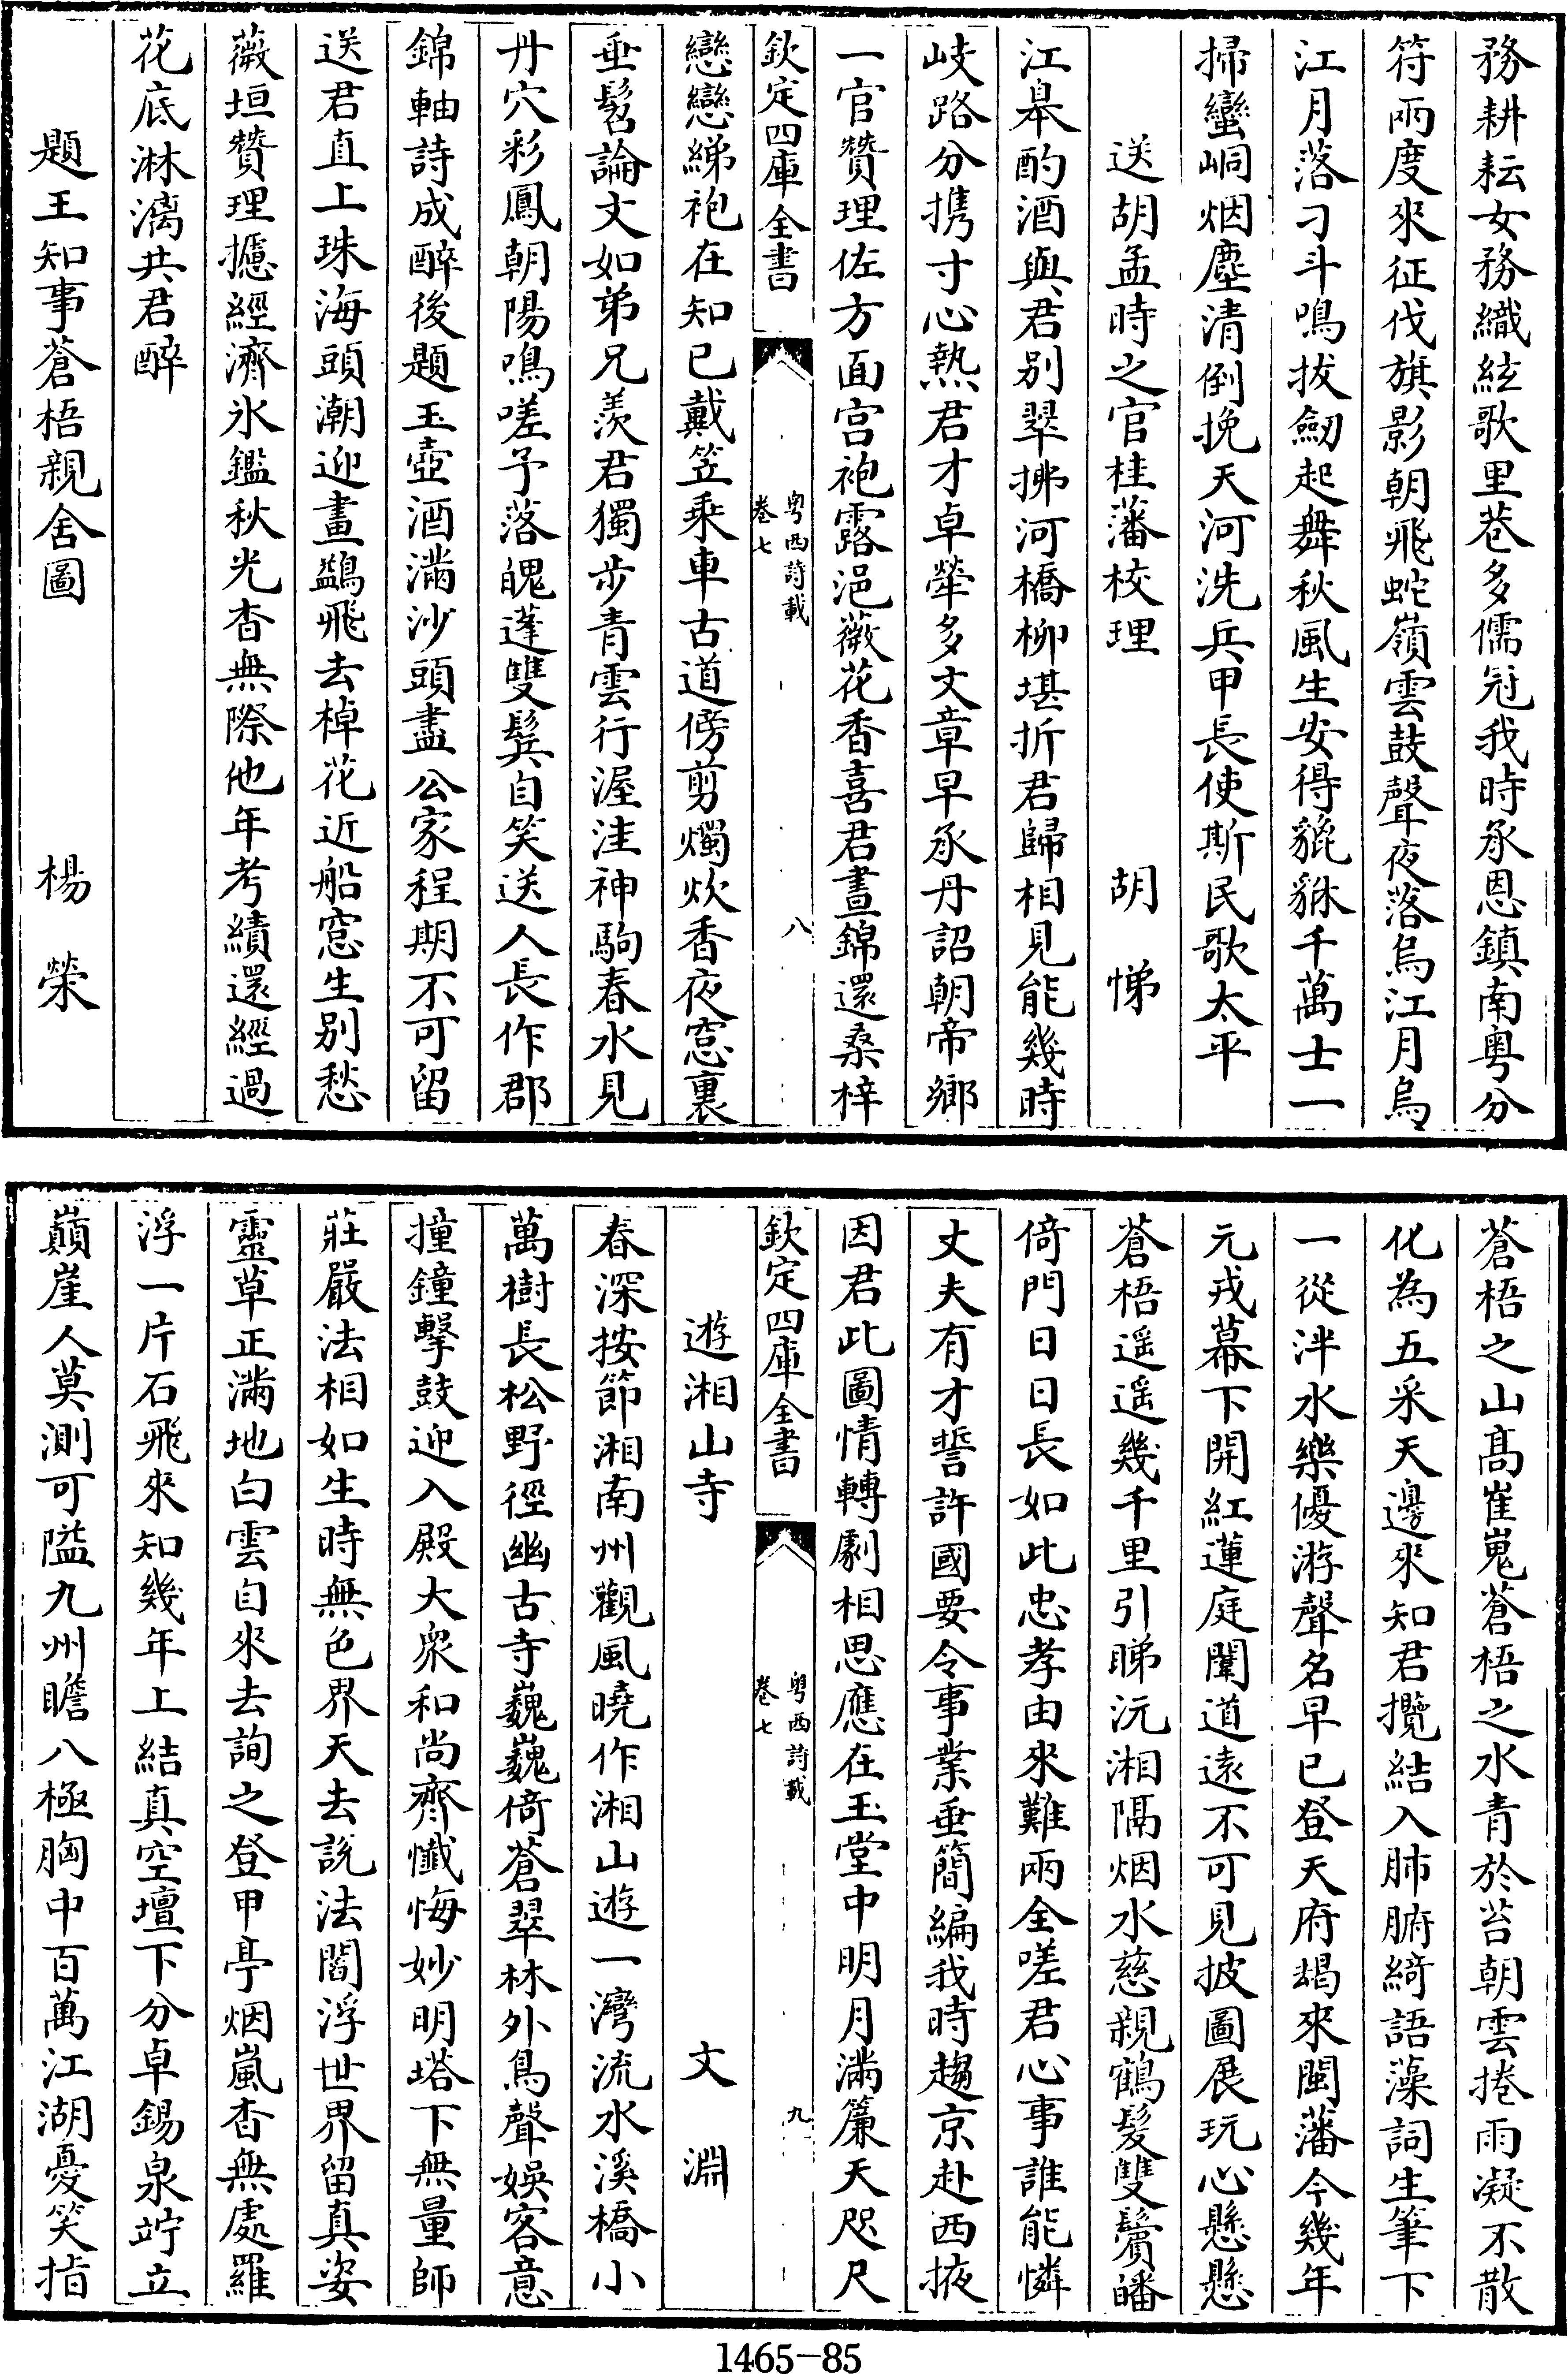 務耕耘女務織絃歌里巷多儒冠我時承恩鎮南粤分
符兩度來征伐旗影朝飛蛇嶺雲鼓聲夜落烏江月烏
江月落刁斗鳴拔劒起舞秋風生安得貔貅千萬士一
掃蠻峒烟塵清倒挽天河洗兵甲長使斯民歌太平
送胡孟時之官桂藩校理 胡悌
江臯酌酒與君别翠拂河橋柳堪折君歸相見能幾時
岐路分携寸心熱君才卓犖多文章早承丹詔朝帝鄉
一官贊理佐方面宫袍露浥薇花香喜君晝錦還桑梓
欽定四庫全書 粤西詩載 卷七 八
戀戀綈袍在知已戴笠乘車古道傍剪燭炊香夜窓裏
垂髫論文如弟兄羨君獨步青雲行渥洼神駒春水見
丹穴彩鳳朝陽鳴嗟予落魄蓬雙鬂自笑送人長作郡
錦軸詩成醉後題玉壺酒滿沙頭盡公家程期不可留
送君直上珠海頭潮迎畫鷁飛去棹花近船窓生别愁
薇垣贊理攄經濟氷鑑秋光杳無際他年考績還經過
花底淋漓共君醉
題王知事蒼梧親舍圖 楊榮
蒼梧之山髙崔嵬蒼梧之水青於苔朝雲捲雨凝不散
化為五采天邊來知君攬結入肺腑綺語藻詞生筆下
一從泮水樂優游聲名早已登天府朅來閩藩今幾年
元戎幕下開紅蓮庭闈道遠不可見披圖展玩心懸懸
蒼梧遥遥幾千里引睇沅湘隔烟水慈親鶴髮雙鬢皤
倚門日日長如此忠孝由來難兩全嗟君心事誰能憐
丈夫有才誓許國要令事業垂簡編我時趨京赴西掖
因君此圖情轉劇相思應在玉堂中明月滿簾天咫尺
欽定四庫全書 粤西詩載 卷七 九
遊湘山寺 文淵
春深按節湘南州觀風曉作湘山遊一灣流水溪橋小
萬樹長松野徑幽古寺巍巍倚蒼翠林外鳥聲娛客意
撞鐘擊鼓迎入殿大衆和尚齊懺悔妙明塔下無量師
莊嚴法相如生時無色界天去説法閻浮世界留真姿
靈草正滿地白雲自來去詢之登甲亭烟嵐杳無處羅
浮一片石飛來知幾年上結真空壇下分卓錫泉竚立
巔崖人莫測可隘九州瞻八極胸中百萬江湖憂笑指
1465-85